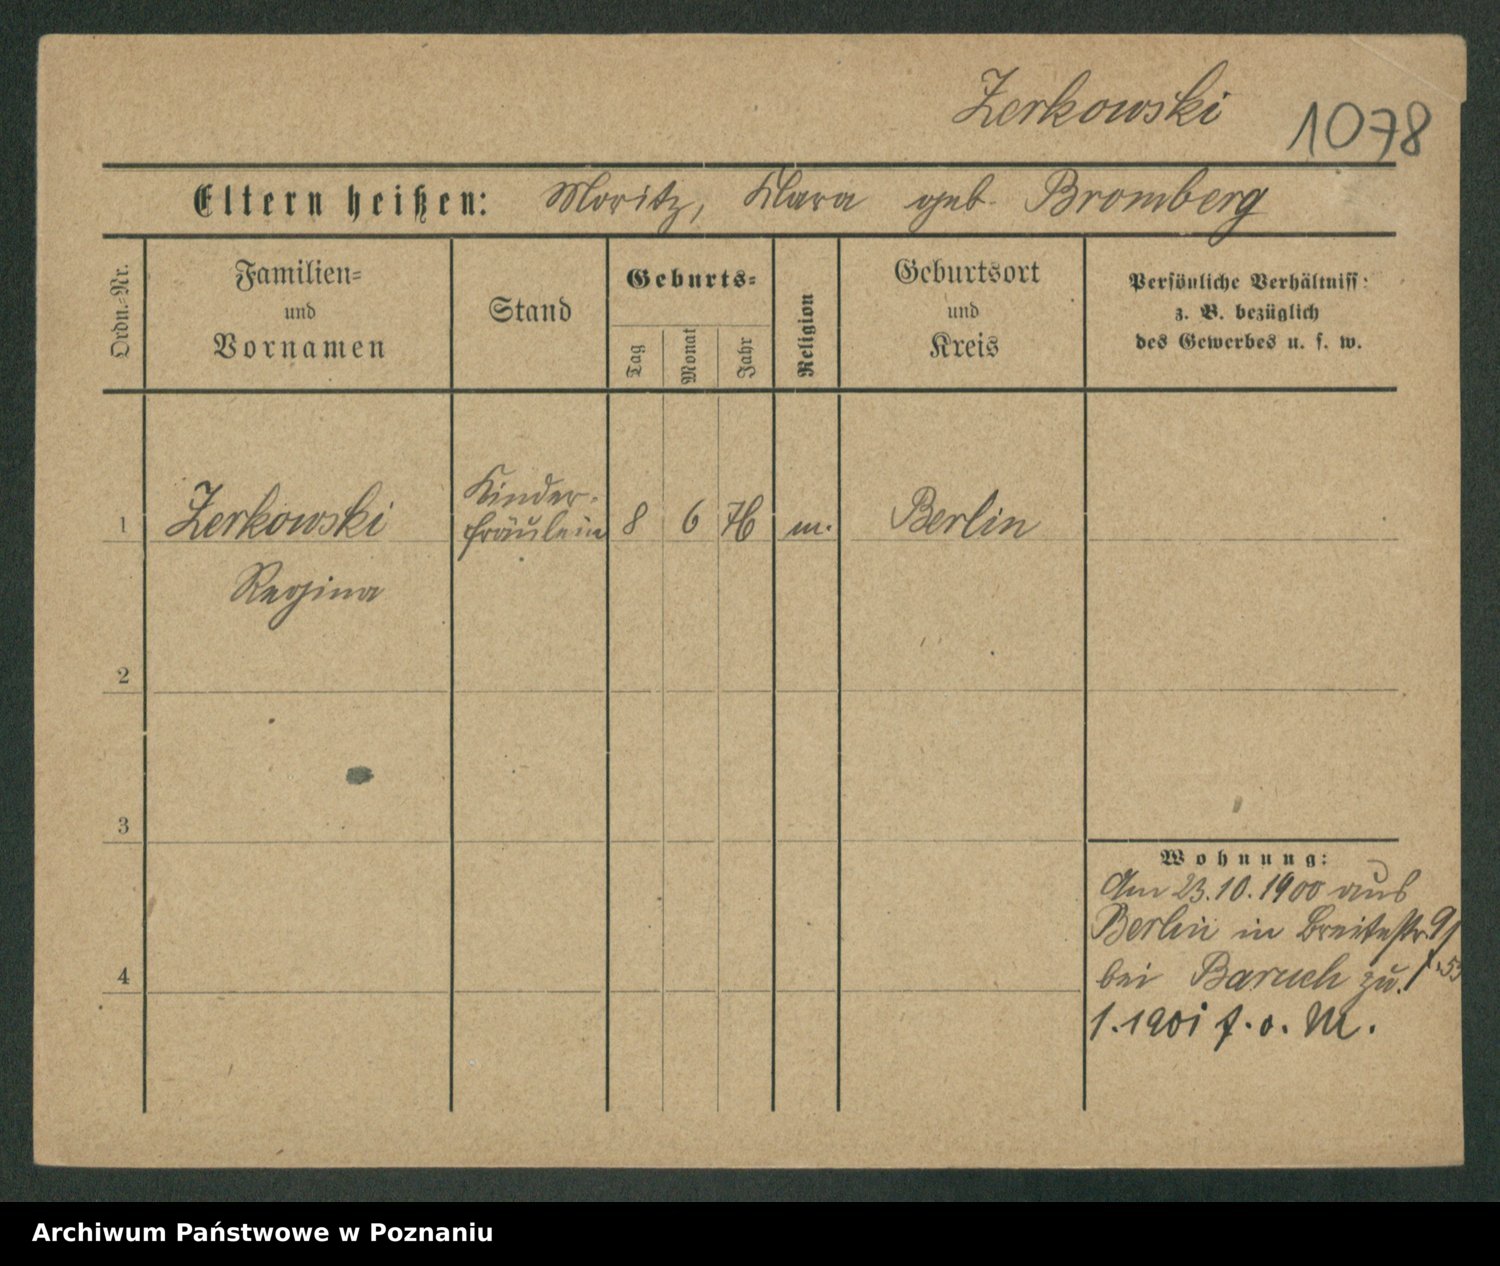 Zerkowski
1078
Eltern heißen: Moritz, Klara geb. Bromberg
Ordn.-Nr.
Familien- und Vornamen
Stand
Geburts-
Tag
Monat
Jahr
Religion
Geburtsort und Kreis
Persönliche Verhältniss:
z. B. bezüglich
des Gewerbes u. s. w.
Kinder-
1 Zerkowski fräulein 8 6 76 m. Berlin
Regina
2
3
Wohnung:
Am 23.10.1900 aus
Berlin in Breitestr. 9
bei Baruch zu.
4
1.1901 f. o. M.
Archiwum Państwowe w Poznaniu